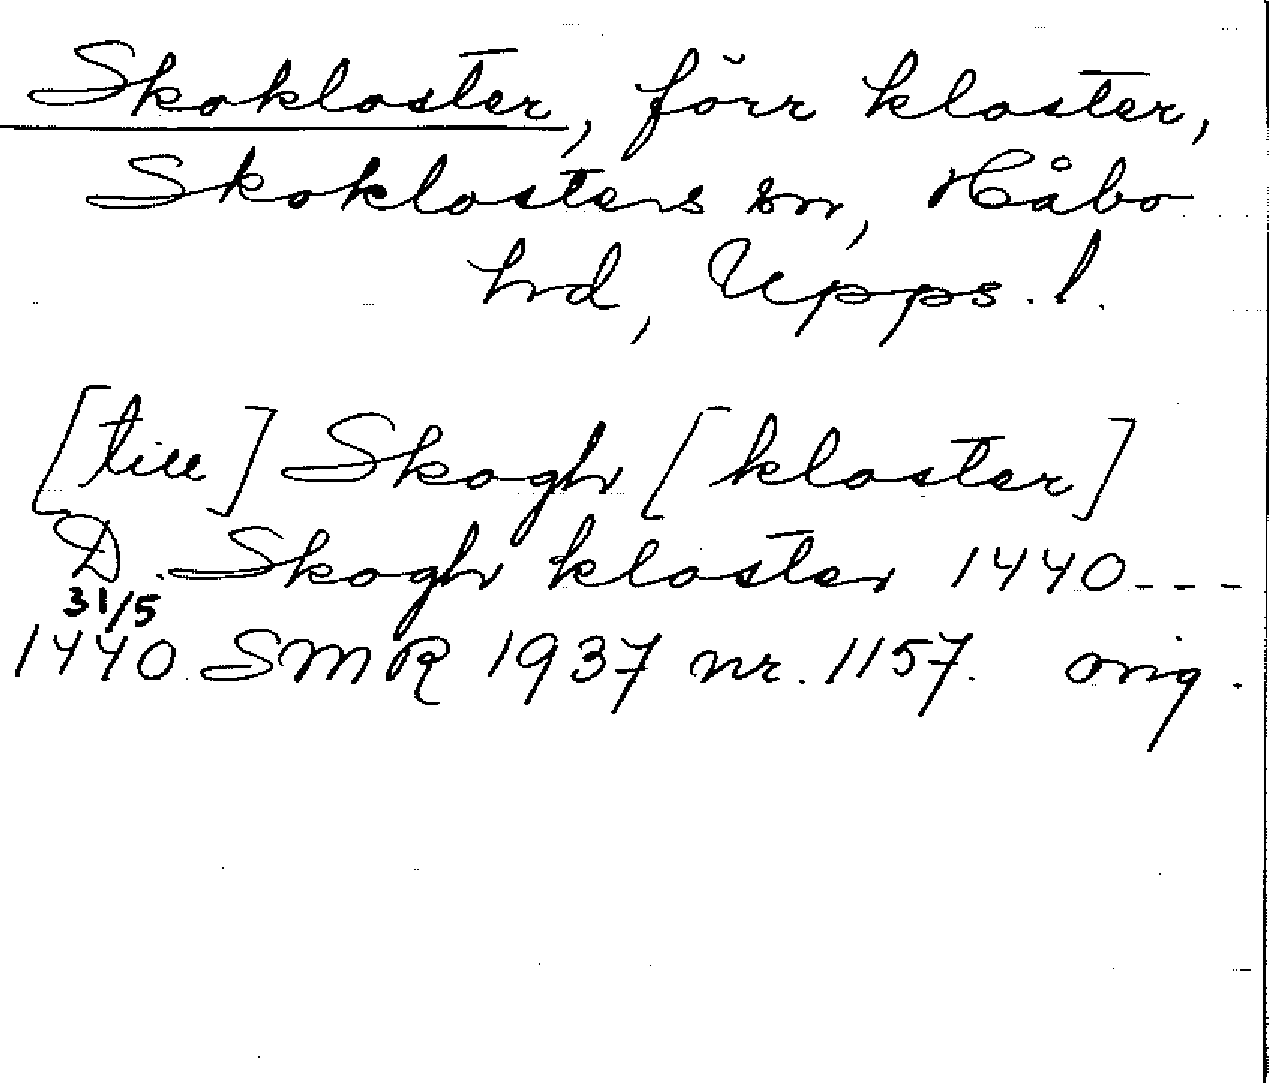 Skokloster, förr kloster,
Skoklosters sn, Håbo
hd, Upps. l.
[till] Skogh [kloster]
D. Skogh kloster 1440---
31/5
1440 SMR 1937 nr. 1157. orig.